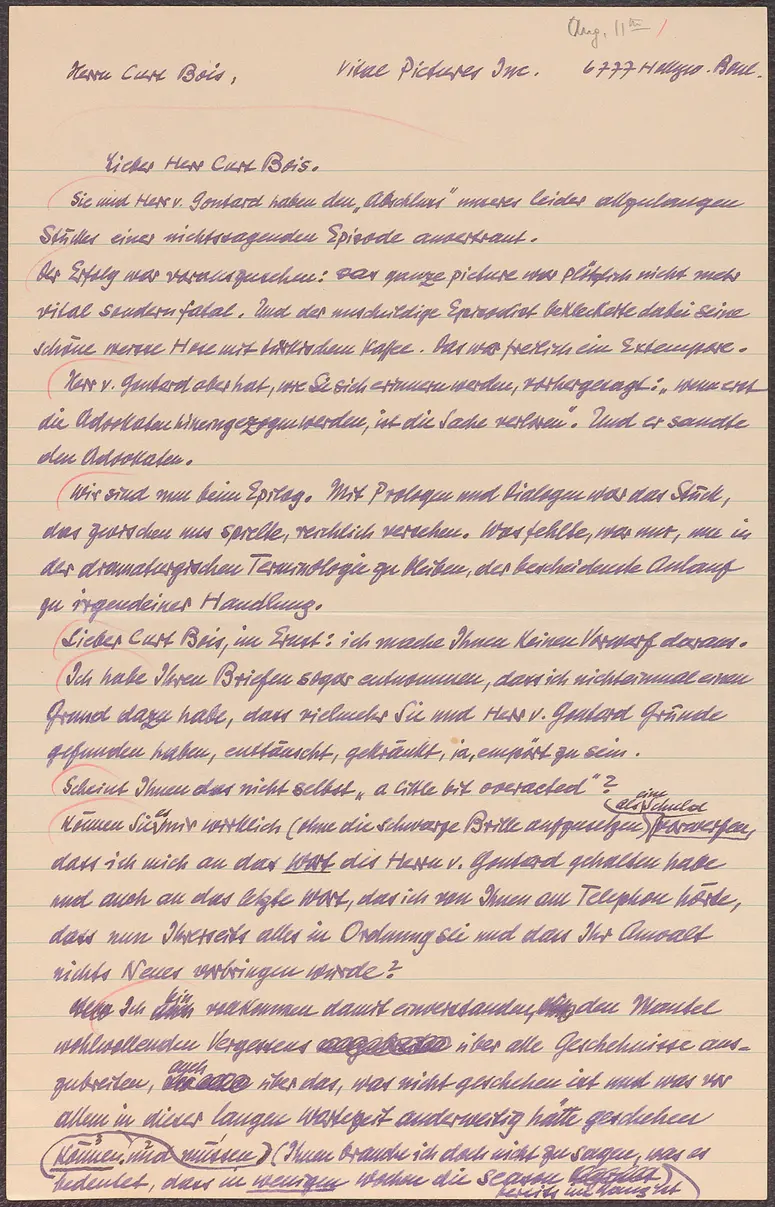 Aug. 11th
Herrn Curt Bois, Vital Pictures Inc. 6777 Hollyw. Boul.
Lieber Herr Curt Bois.
Sie und Herr v. Gontard haben den „Abschluss" unseres leider allzulangen
Stückes einer nichtssagenden Episode anvertraut.
Der Erfolg war vorauszusehen: das ganze picture war plötzlich nicht mehr
vital sondern fatal. Und der unschuldige Episodist bekleckerte dabei seine
schöne weisse Hose mit türkischem Kaffee. Das war freilich ein Extempore.
Herr v. Gontard aber hat, wie Sie sich erinnern werden, vorhergesagt: „wenn erst
die Advokaten hineingezogen werden, ist die Sache verloren". Und er sandte
den Advokaten.
Wir sind nun beim Epilog. Mit Prologen und Dialogen war das Stück,
das zwischen uns spielte, reichlich versehen. Was fehlte, war nur, um in
der dramaturgischen Terminologie zu bleiben, der bescheidenste Anlauf
zu irgendeiner Handlung.
Lieber Curt Bois, im Ernst: ich mache Ihnen keinen Vorwurf daraus.
Ich habe Ihren Briefen sogar entnommen, dass ich nicht einmal einen
Grund dazu habe, dass vielmehr Sie und Herr v. Gontard Gründe
gefunden haben, enttäuscht, gekränkt, ja, empört zu sein.
Scheint Ihnen das nicht selbst „a little bit overacted"?
Können Sie es mir wirklich (ohne die schwarze Brille aufzusetzen) als eine Schuld vorwerfen,
dass ich mich an das Wort des Herrn v. Gontard gehalten habe
und auch an das letzte Wort, das ich von Ihnen am Telephon hörte,
dass nun Ihrerseits alles in Ordnung sei und dass Ihr Anwalt
nichts Neues vorbringen würde?
Ich bin vollkommen damit einverstanden, den Mantel
wohlwollenden Vergessens über alle Geschehnisse aus-
zubreiten, auch über das, was nicht geschehen ist und was vor
allem in dieser langen Wartezeit anderweitig hätte geschehen
können und müssen (Ihnen brauche ich doch nicht zu sagen, was es
bedeutet, dass in wenigen Wochen die season
bereits im Gang ist)